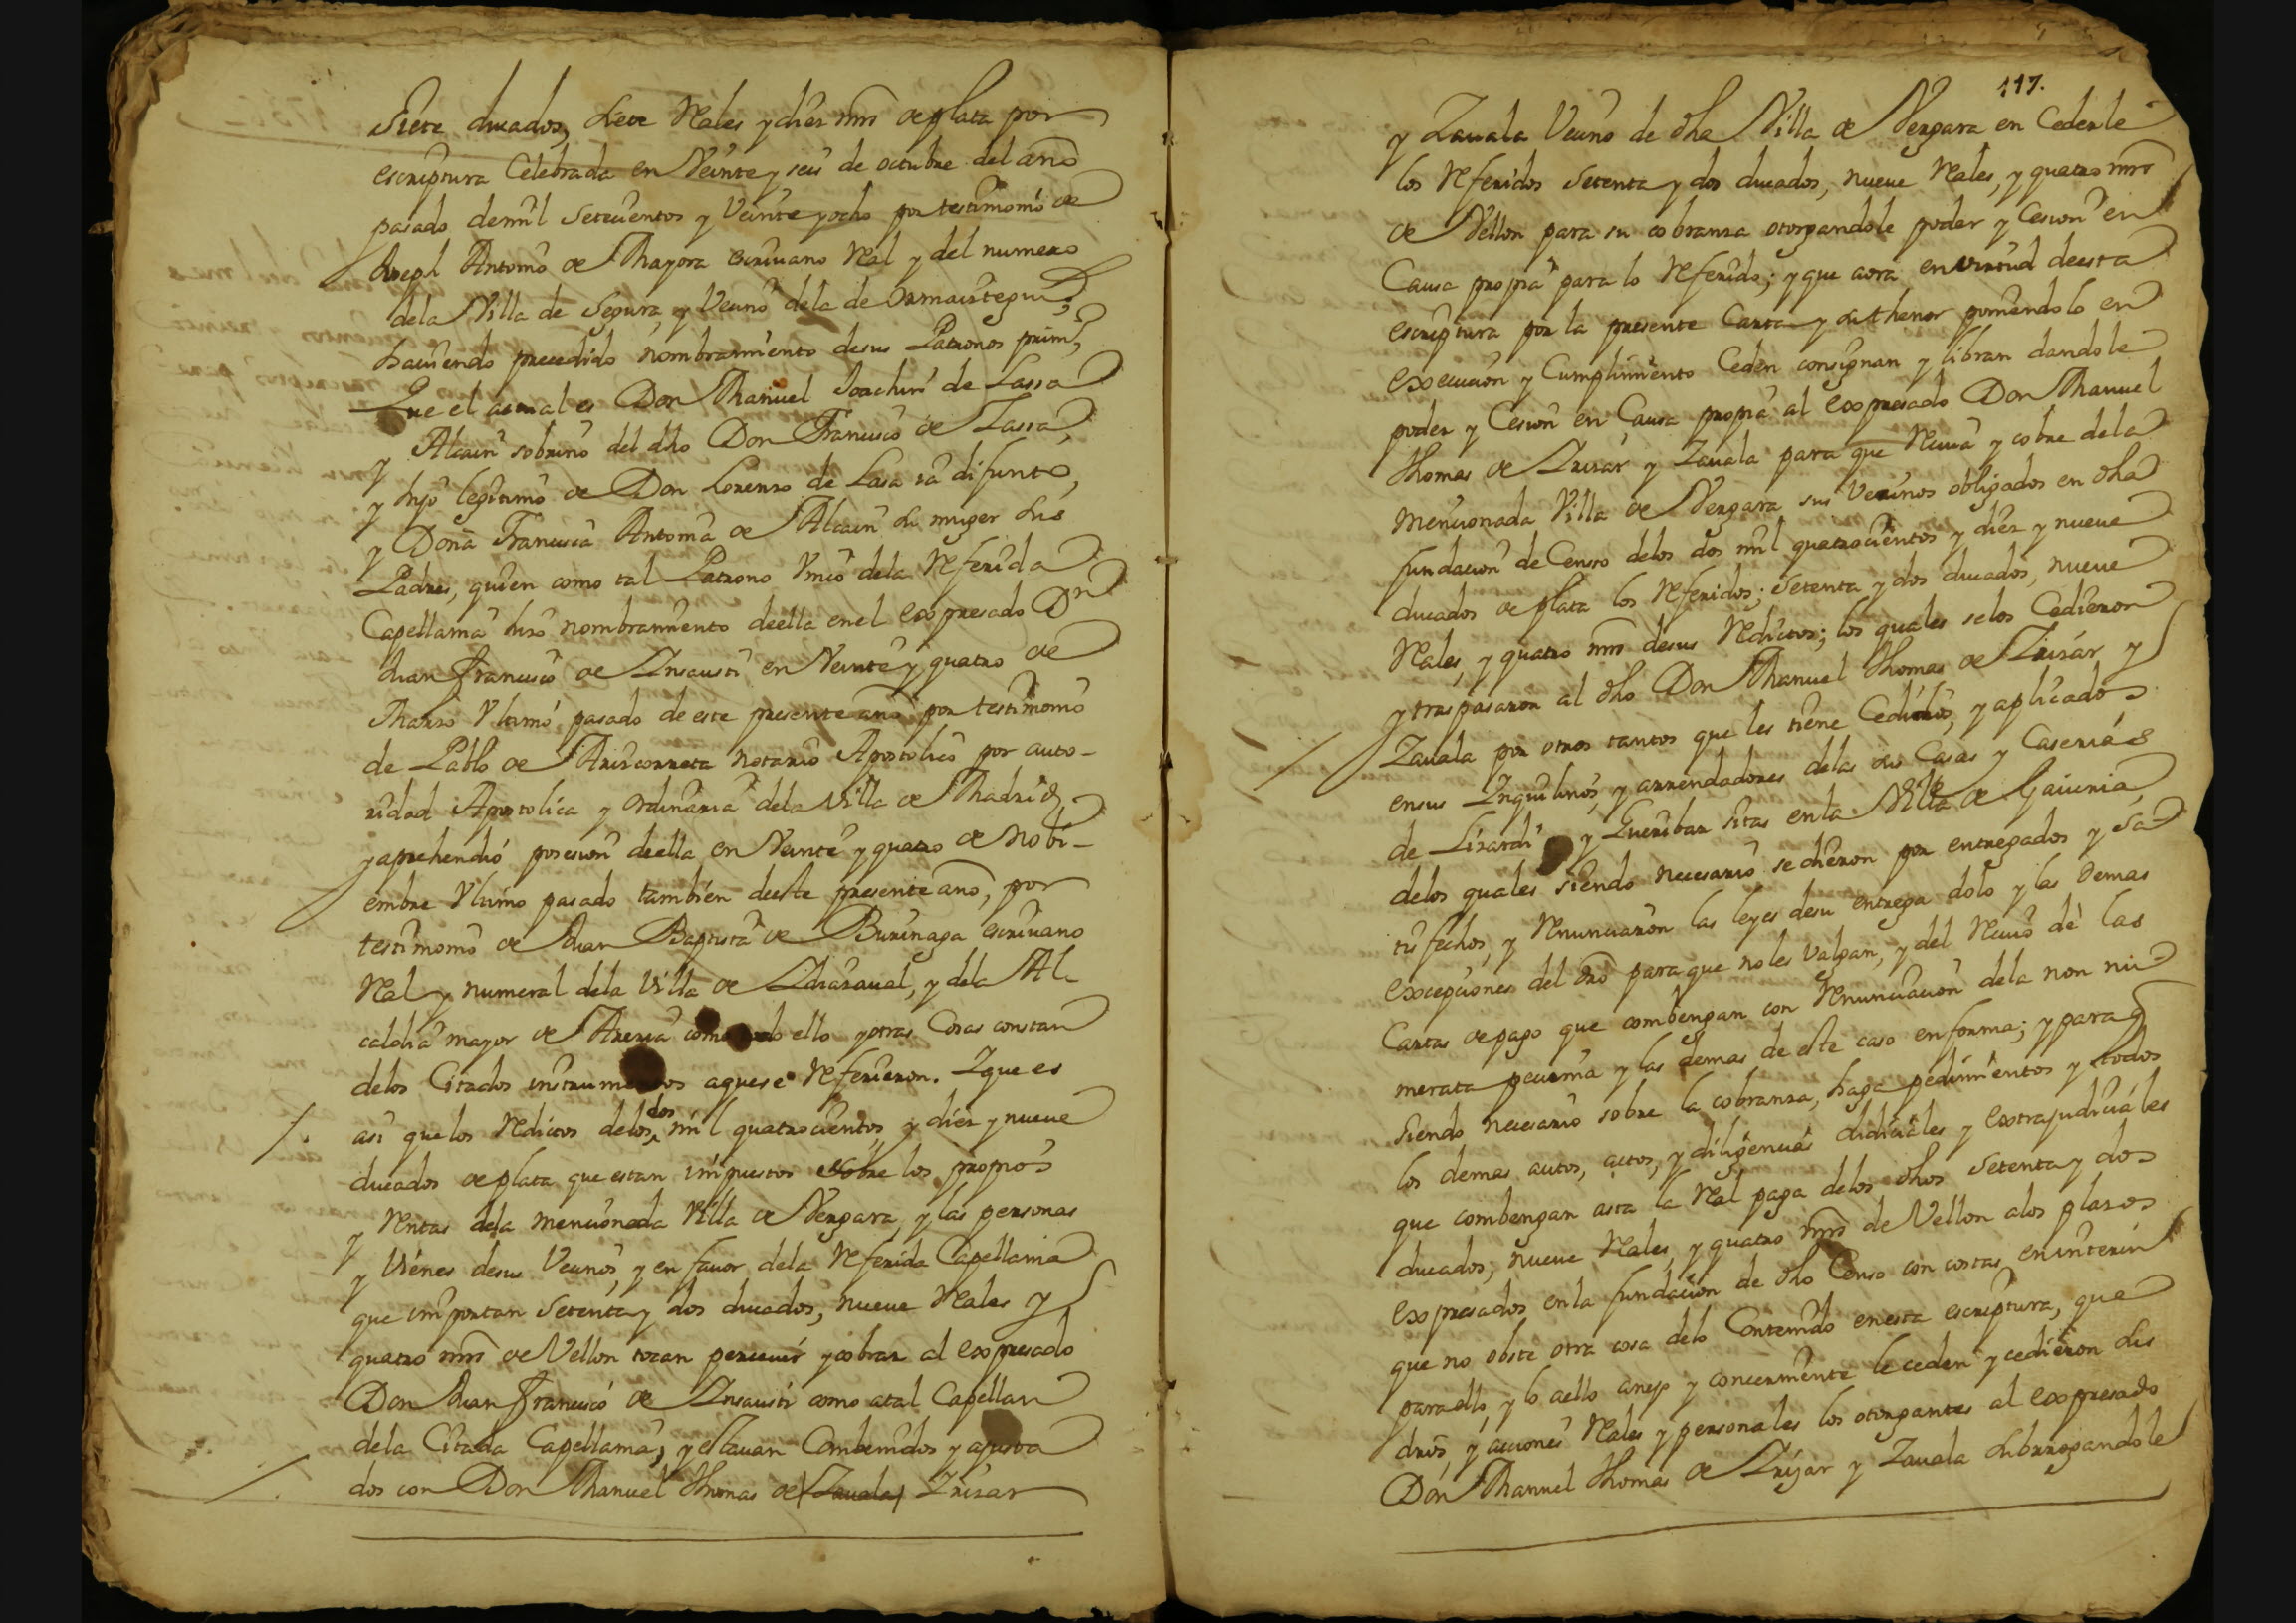 Siete ducados, siete Rales y diez mrs de plata por
escriptura Celebrada en Veinte y seis de octubre del año
pasado de mil Setecientos y Veinte y ocho por testimonio de
Joseph Antonio de Mayora escriuano Ral y del numero
dela Villa de Segura, y Vecino dela de Ormaiztegui;
hauiendo precedido nombramiento de sus Patronos
Que el actual es Don Manuel Joachin de Lassa
y Alcain sobrino del dho Don Francisco de Lassa,
y hijo legitimo de Don Lorenzo de Lasa ia difunto,
y Doña Francisca Antonia de Alcain su muger sus
Padres, quien como tal Patrono Vnico dela Referida
Capellania hizo nombramiento deella enel expresado Dn
Juan Francisco de Insausti en Veinte y quatro de
Marzo Vltimo pasado de este presente año por testimonio
de Pablo de Arizcorreta notario Apostolico por auto-
ridad Apostolica y Ordinaria dela Villa de Madrid,
y aprehendió posesion deella en Veinte y quatro de Nobi-
embre Vltimo pasado tambien deeste presente año, por
testimonio de Juan Baptista de Burinaga escriuano
Ral y numeral dela Villa de Idiazaual, y dela Al-
caldia mayor de Areria como todo ello y otras Cosas constan
delos Citados instrumentos aquese Refirieron. Yque es
asi que los Reditos delos dos mil quatrocientos y diez y nueve
ducados de plata que estan impuestos sobre los propios
y Rentas dela mencionada Villa de Vergara, y las personas
y Vienes desus Vecinos, y en fauor dela Referida Capellania
que importan Setenta y dos ducados, nueue Rales y
quatro mrs de Vellon tocan perceuir y cobrar al expresado
Don Juan Francisco de Insausti como atal Capellan
dela Citada Capellania; y estauan Combenidos y ajusta
dos con Don Manuel Thomas de (Zauala) Irizar
117.
y Zauala Vecino de dha Villa de Vergara en Cederle
los Referidos Setenta y dos ducados, nueue Rales, y quatro mrs
de Vellon para su cobranza otorgandole poder y Cesion en
Causa propia para lo Referido; y que aora en virtud deesta
escriptura por la presente Carta y su thenor poniendolo en
execucion y Cumplimiento Ceden consignan y libran dandole
poder y Cesion en Causa propia al expresado Don Manuel
Thomas de Irizar y Zauala para que Reciua y cobre dela
mencionada Villa de Vergara sus Vecinos obligados en dha
fundacion de Censo delos dos mil quatrocientos y diez y nueue
ducados de plata los Referidos; Setenta y dos ducados, nueue
Rales, y quatro mrs desus Reditos; los quales selos Cedieron
y traspasaron al dho Don Manuel Thomas de Irizár y
Zauala por otros tantos que les tiene Cedidos, y aplicados
ensus Inquilinos, y arrendadores delas sus Casas y Caserias
de Lizardi y Gueribar sitas enla Villa de Gaiuria,
delos quales siendo necesario se dieron por entregados y sa
tisfechos, y Renunciaron las leyes desu entrega dolo y las demas
excepciones del dro para que no les Valgan, y del Reciuo de las
Cartas de pago que combengan con Renunciacion dela non nu
merata pecunia y las demas de este caso en forma; y para q
Siendo necesario sobre la cobranza, haga pedimientos y todos
los demas autos, actos, y diligencias Judiciales y extrajudiciales
que combengan asta la Ral paga delos dhos Setenta y dos
ducados, nueue Rales, y quatro mrs de Vellon alos plazos
expresados enla fundacion de dho Censo con costas, en interin
que no obste otra cosa delo Contenido enesta escriptura, que
para ello, y lo aello anejo y concerniente le ceden y cedieron sus
dros, y acciones Rales y personales los otorgantes al expresado
Don Manuel Thomas de Irizar y Zauala subrrogandole